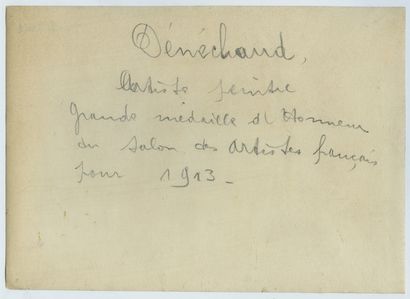 Dénéchaud,
Artiste peintre
grande médaille d'Honneur
du salon des artistes français
pour 1913_